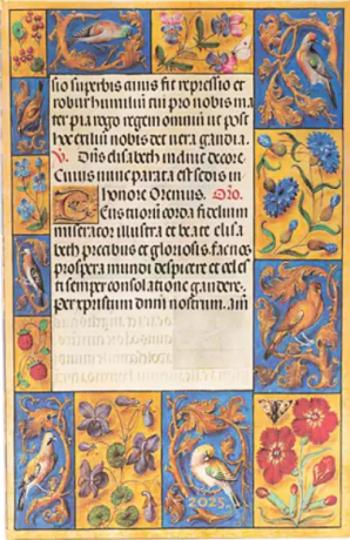 sio superbis anns fit repressio et
robur humiliū tui pro nobis ma
ter pia rogo regem omniū ut post
hoc exiliū nobis det vera gaudia.
V. Dn̄s elisabeth indiuit decore.
Cuius nunc parata est sedis in
honore Oremus. Orō.
Eus tuorū corda fidelium
miserator illustra et beate elisa
beth precibus et gloriosis. fac nos
prospera mundi despicere et celes
ti semper consolatione gaudere.
Per xpristum dnm̄ nostrum. am̄
2025